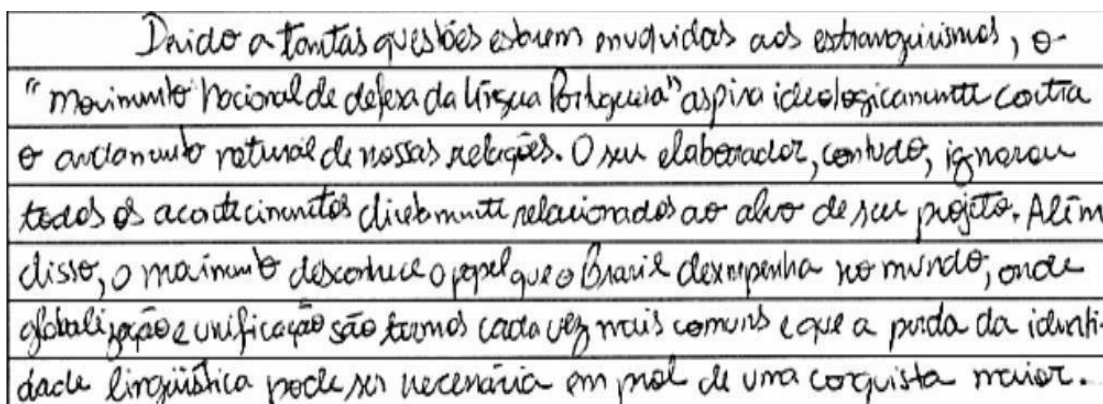 Devido a tantas questões estarem envolvidas aos estrangeirismos, o
"movimento Nacional de defesa da língua Portuguesa" aspira ideologicamente contra
o andamento natural de nossas relações. O seu elaborador, contudo, ignorou
todos os acontecimentos diretamente relacionados ao alvo de seu projeto. Além
disso, o movimento desconhece o papel que o Brasil desempenha no mundo, onde
globalização e unificação são termos cada vez mais comuns e que a perda da identi-
dade lingüística pode ser necessária em prol de uma conquista maior.